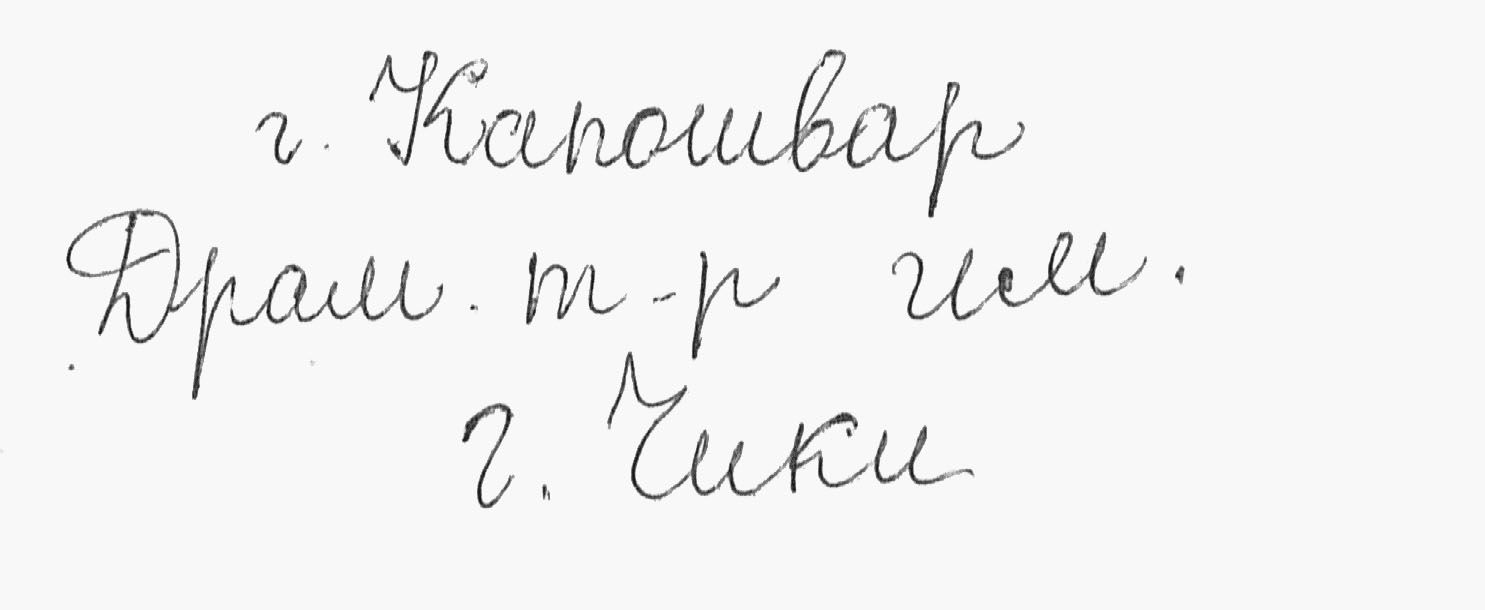 г. Капошвар
Драм. т-р им.
Г. Чики